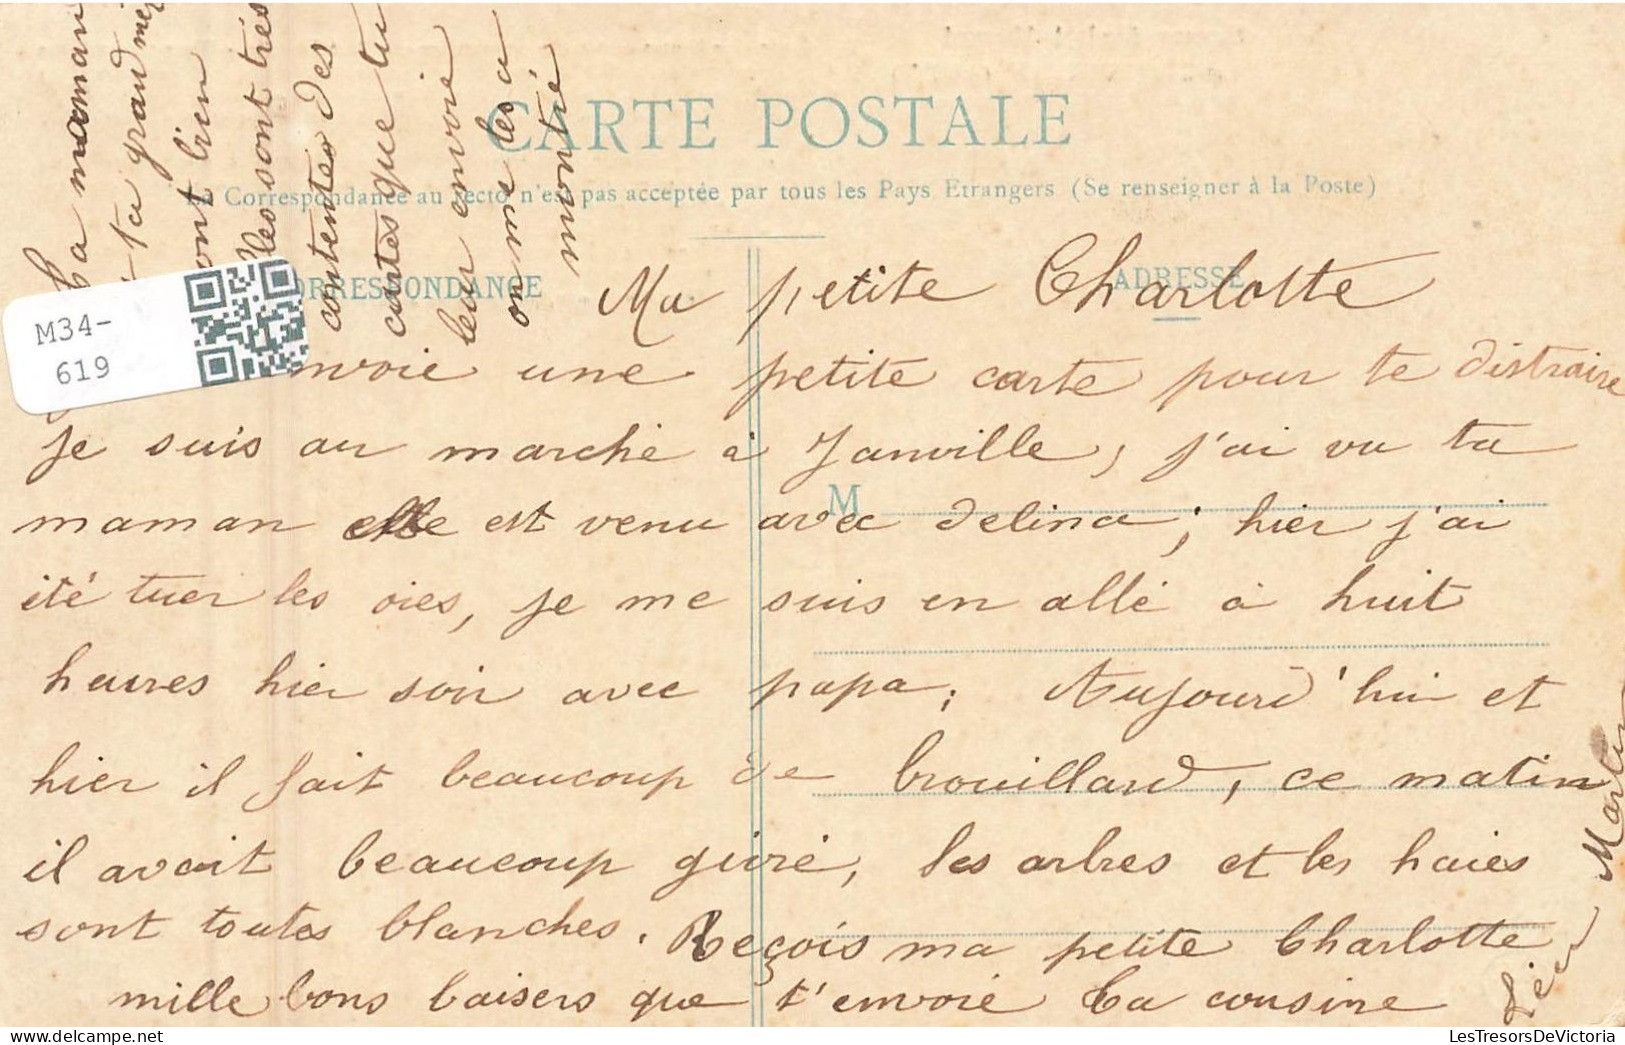 CARTE POSTALE
La Correspondance au recto n'est pas acceptée par tous les Pays Etrangers (Se renseigner à la Poste)
CORRESPONDANCE
ADRESSE
M
M34-
619
Ma petite Charlotte
envoie une petite carte pour te distraire
je suis au marché à Janville, j'ai vu ta
maman elle est venu avec Delina; hier j'ai
été tuer les oies, je me suis en allé à huit
heures hier soir avec papa; Aujourd'hui et
hier il fait beaucoup de brouillard, ce matin
il avait beaucoup givré, les arbres et les haies
sont toutes blanches. Reçois ma petite Charlotte
mille bons baisers que t'envoie ta cousine
Martin
Ta maman
ta grand mère
sont bien
elles sont très
contentes des
cartes que tu
leur envoie
on me les a
montré
LesTresorsDeVictoria.com